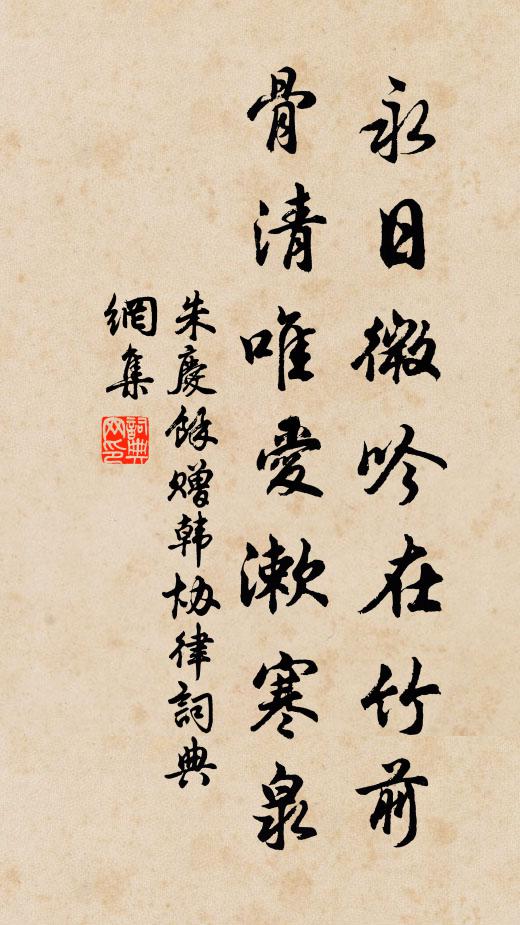 永日微吟在竹前
骨清唯愛漱寒泉
朱慶餘赠韩协律詞典
網集
詞典網印